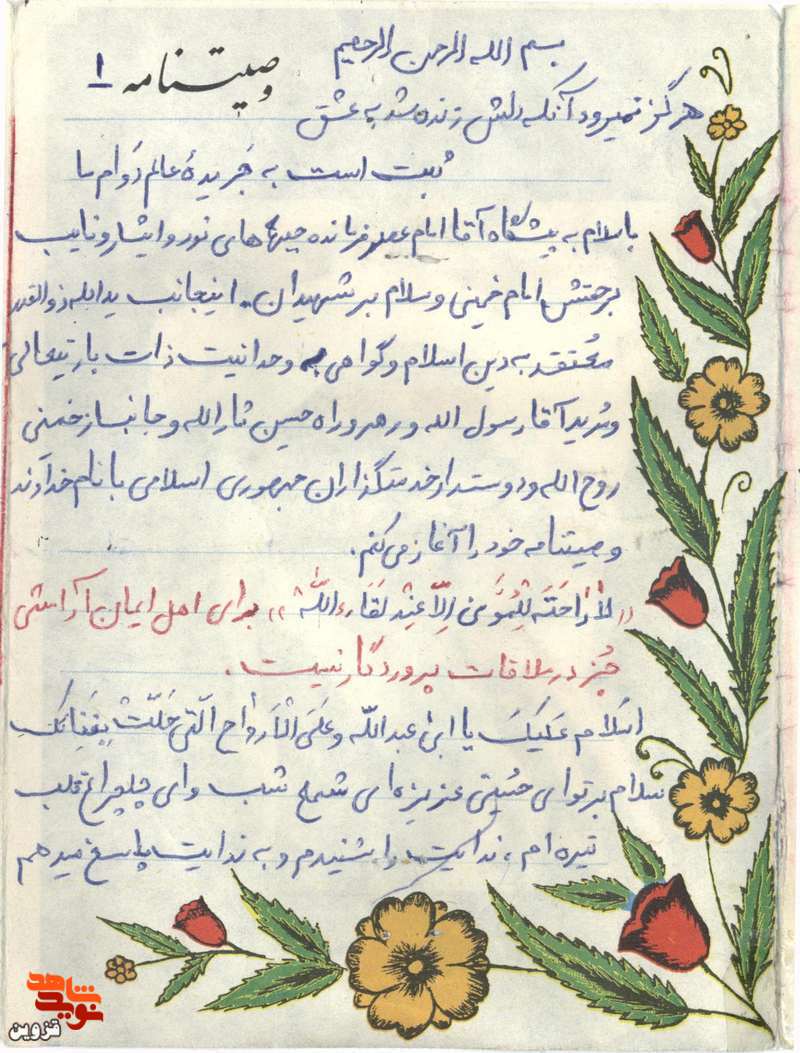 بسم الله الرحمن الرحیم
وصیتنامه ۱
هرگز نمیرود آنکه دلش زنده شد به عشق
ثبت است به جریدهٔ عالم دوام ما
باسلام به پیشگاه آقا امام عصر فرمانده جبهه‌های نور و ایثار و نایب
برحقش امام خمینی و سلام بر شهیدان. اینجانب یدالله ذوالقدر
معتقد به دین اسلام و گواهی به وحدانیت ذات باریتعالی
و مرید آقا رسول الله و رهرو راه حسین ثارالله و جانباز خمینی
روح الله و دوستدار خدمتگذاران جمهوری اسلامی با نام خداوند
وصیتنامه خود را آغاز می‌کنم.
«لا راحَتَه لِلمُؤمِن اِلّا عِنْدَ لَقَاءِ اللّه» برای اهل ایمان آرامشی
جُز در ملاقات پروردگار نیست.
اسَلام عَلَیکَ یا ابی عبداللّه وَ عَلَی الْاَرواحِ الّتی حَلّتْ بِفَنائِکِ
سلام بر تو ای حُسین عزیز، ای شمع شب و ای چلچراغ قلب
تیره ام، ندایت را شنیدم و به ندایت پاسخ میدهم
نوید شاهد
قزوین